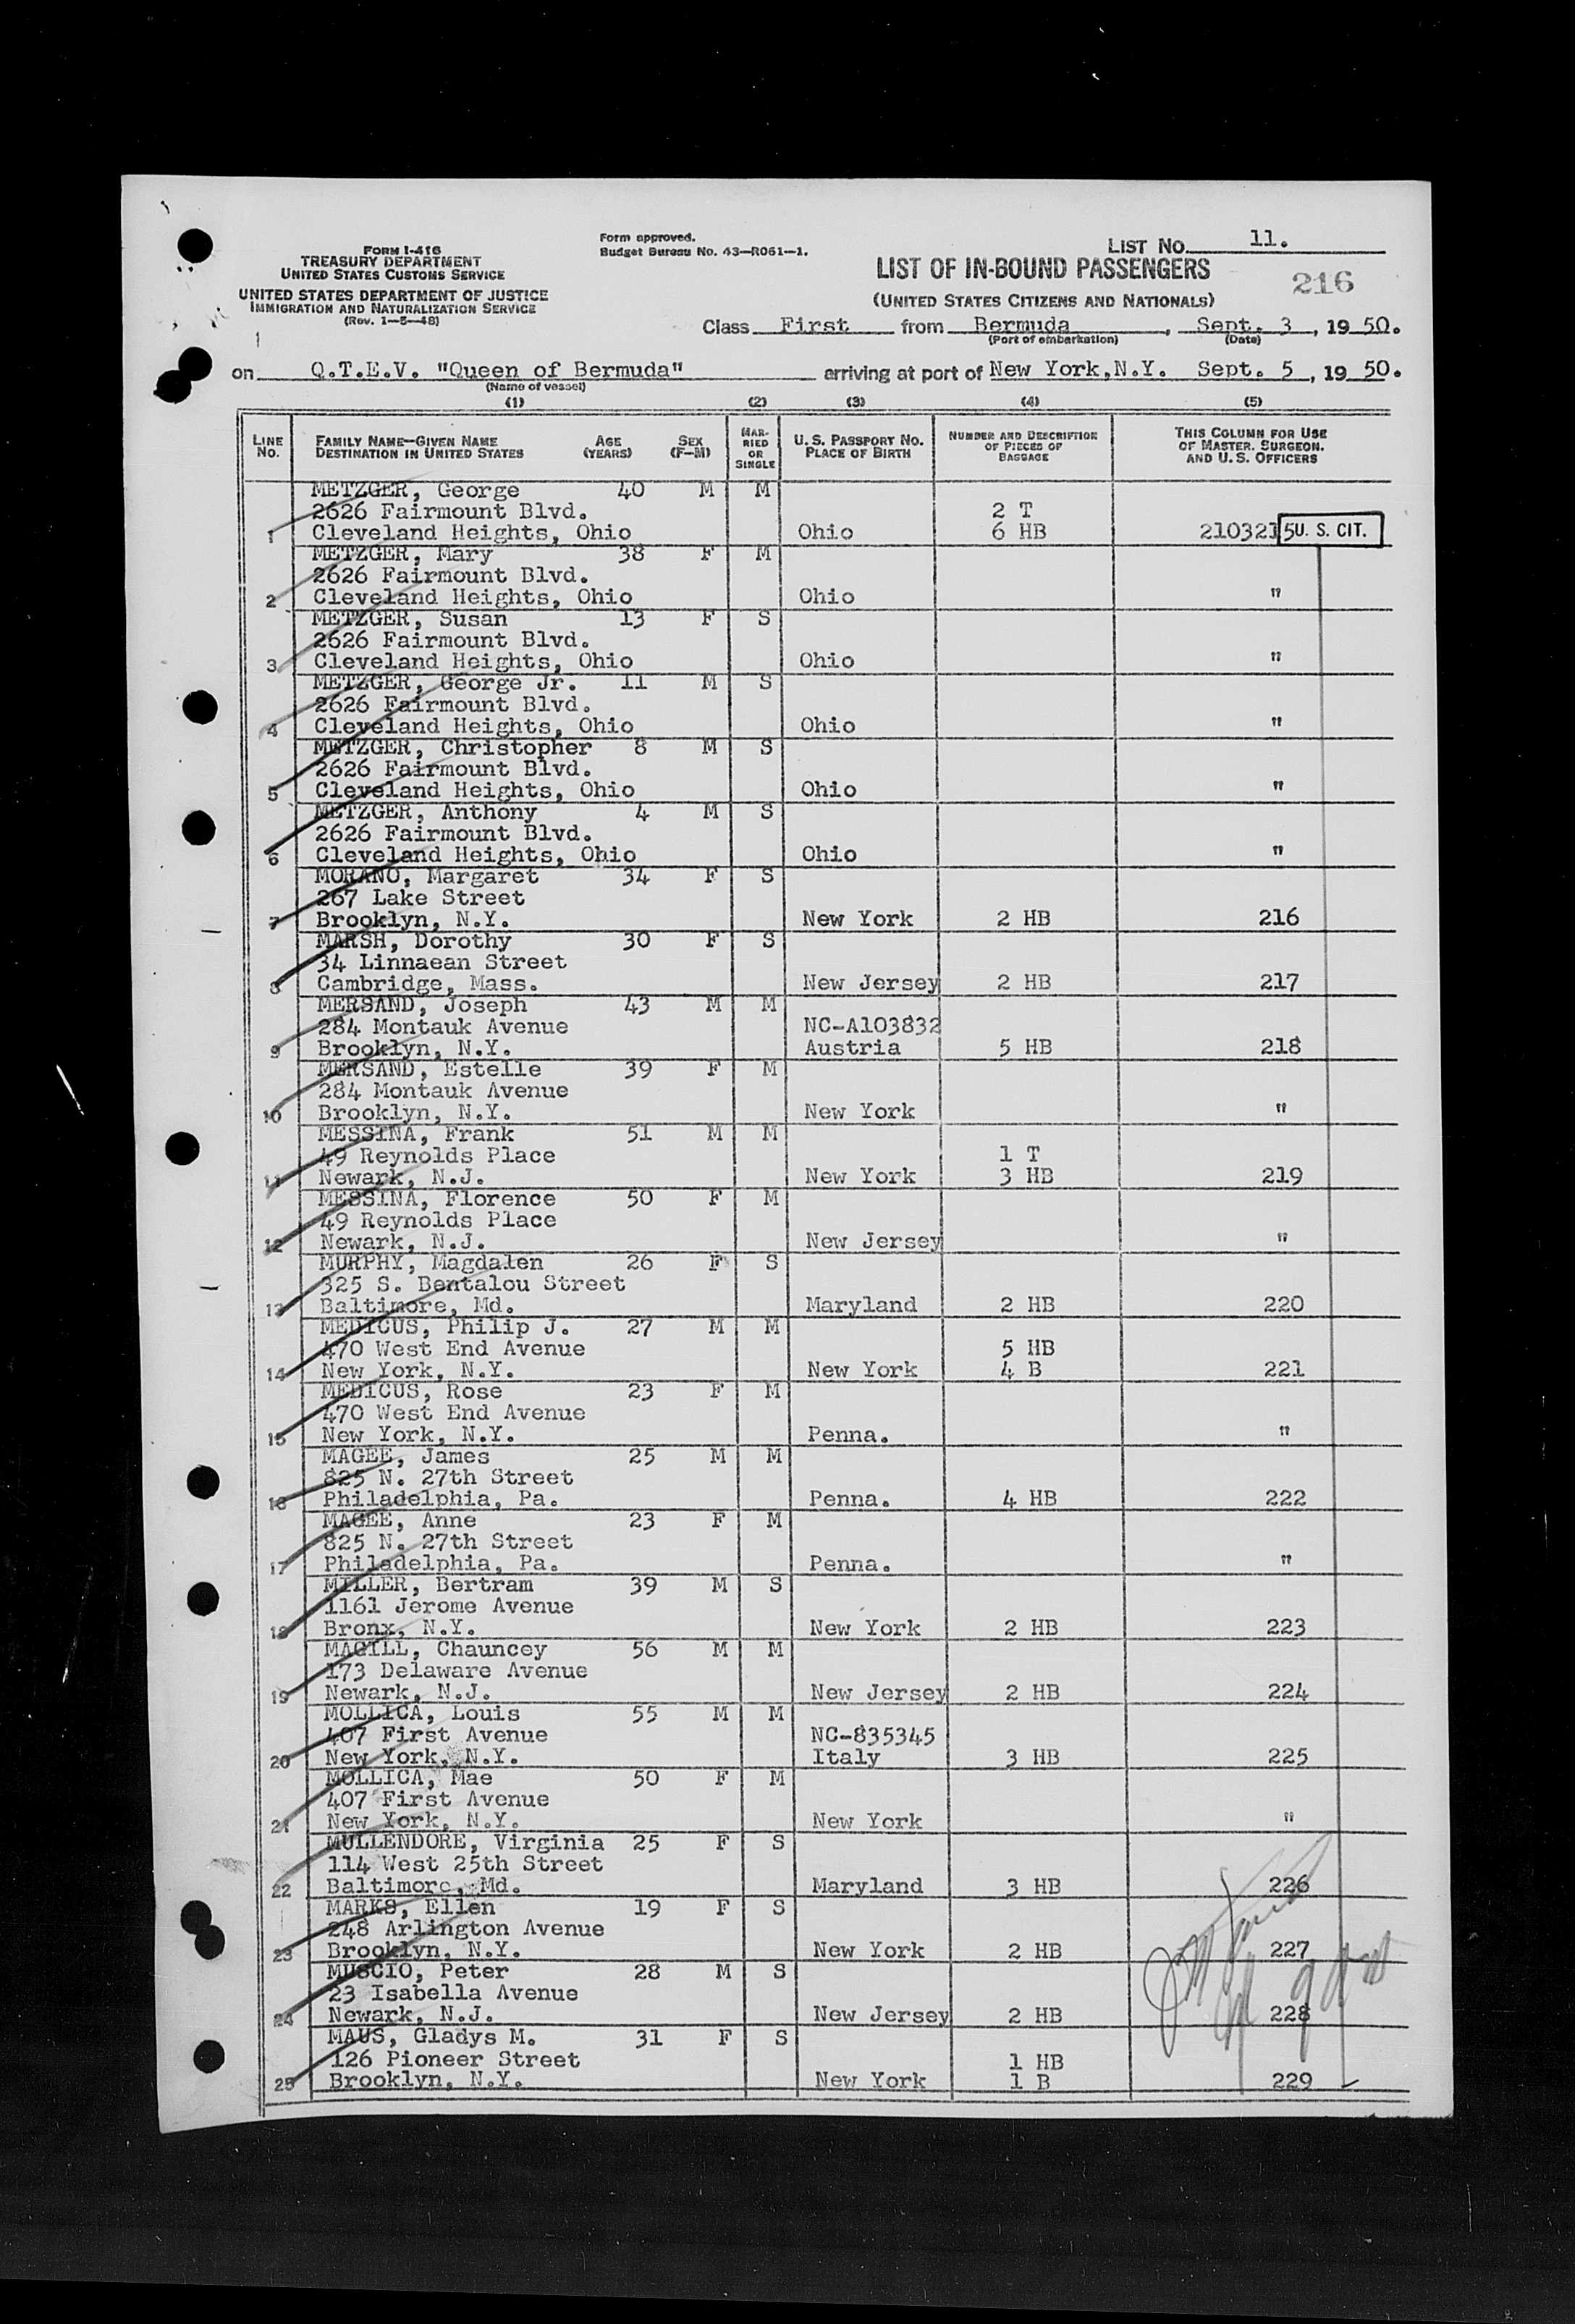 FORM I-416
TREASURY DEPARTMENT
UNITED STATES CUSTOMS SERVICE
UNITED STATES DEPARTMENT OF JUSTICE
IMMIGRATION AND NATURALIZATION SERVICE
(Rev. 1—5—48)
Form approved.
Budget Bureau No. 43—R061—1.
LIST No. 11.
LIST OF IN-BOUND PASSENGERS
216
(UNITED STATES CITIZENS AND NATIONALS)
Class First from Bermuda, Sept. 3, 1950.
(Port of embarkation) (Date)
on Q.T.E.V. "Queen of Bermuda" arriving at port of New York,N.Y. Sept. 5, 1950.
(Name of vessel)
(1) (2) (3) (4) (5)
LINE No. FAMILY NAME—GIVEN NAME DESTINATION IN UNITED STATES AGE (YEARS) SEX (F—M) MARRIED OR SINGLE U. S. PASSPORT NO. PLACE OF BIRTH NUMBER AND DESCRIPTION OF PIECES OF BAGGAGE THIS COLUMN FOR USE OF MASTER, SURGEON, AND U. S. OFFICERS
METZGER, George 40 M M
2626 Fairmount Blvd. 2 T
1 Cleveland Heights, Ohio Ohio 6 HB 2103215 U. S. CIT.
METZGER, Mary 38 F M
2626 Fairmount Blvd.
2 Cleveland Heights, Ohio Ohio "
METZGER, Susan 13 F S
2626 Fairmount Blvd.
3 Cleveland Heights, Ohio Ohio "
METZGER, George Jr. 11 M S
2626 Fairmount Blvd.
4 Cleveland Heights, Ohio Ohio "
METZGER, Christopher 8 M S
2626 Fairmount Blvd.
5 Cleveland Heights, Ohio Ohio "
METZGER, Anthony 4 M S
2626 Fairmount Blvd.
6 Cleveland Heights, Ohio Ohio "
MORANO, Margaret 34 F S
267 Lake Street
7 Brooklyn, N.Y. New York 2 HB 216
MARSH, Dorothy 30 F S
34 Linnaean Street
8 Cambridge, Mass. New Jersey 2 HB 217
MERSAND, Joseph 43 M M
284 Montauk Avenue NC-A103832
9 Brooklyn, N.Y. Austria 5 HB 218
MERSAND, Estelle 39 F M
284 Montauk Avenue
10 Brooklyn, N.Y. New York "
MESSINA, Frank 51 M M
49 Reynolds Place 1 T
11 Newark, N.J. New York 3 HB 219
MESSINA, Florence 50 F M
49 Reynolds Place
12 Newark, N.J. New Jersey "
MURPHY, Magdalen 26 F S
325 S. Bentalou Street
13 Baltimore, Md. Maryland 2 HB 220
MEDICUS, Philip J. 27 M M
470 West End Avenue 5 HB
14 New York, N.Y. New York 4 B 221
MEDICUS, Rose 23 F M
470 West End Avenue
15 New York, N.Y. Penna. "
MAGEE, James 25 M M
825 N. 27th Street
16 Philadelphia, Pa. Penna. 4 HB 222
MAGEE, Anne 23 F M
825 N. 27th Street
17 Philadelphia, Pa. Penna. "
MILLER, Bertram 39 M S
1161 Jerome Avenue
18 Bronx, N.Y. New York 2 HB 223
MAGILL, Chauncey 56 M M
173 Delaware Avenue
19 Newark, N.J. New Jersey 2 HB 224
MOLLICA, Louis 55 M M
407 First Avenue NC-835345
20 New York, N.Y. Italy 3 HB 225
MOLLICA, Mae 50 F M
407 First Avenue
21 New York, N.Y. New York "
MULLENDORE, Virginia 25 F S
114 West 25th Street
22 Baltimore, Md. Maryland 3 HB 226
MARKS, Ellen 19 F S
248 Arlington Avenue
23 Brooklyn, N.Y. New York 2 HB 227
MUSCIO, Peter 28 M S
23 Isabella Avenue
24 Newark, N.J. New Jersey 2 HB 228
MAUS, Gladys M. 31 F S
126 Pioneer Street 1 HB
25 Brooklyn, N.Y. New York 1 B 229